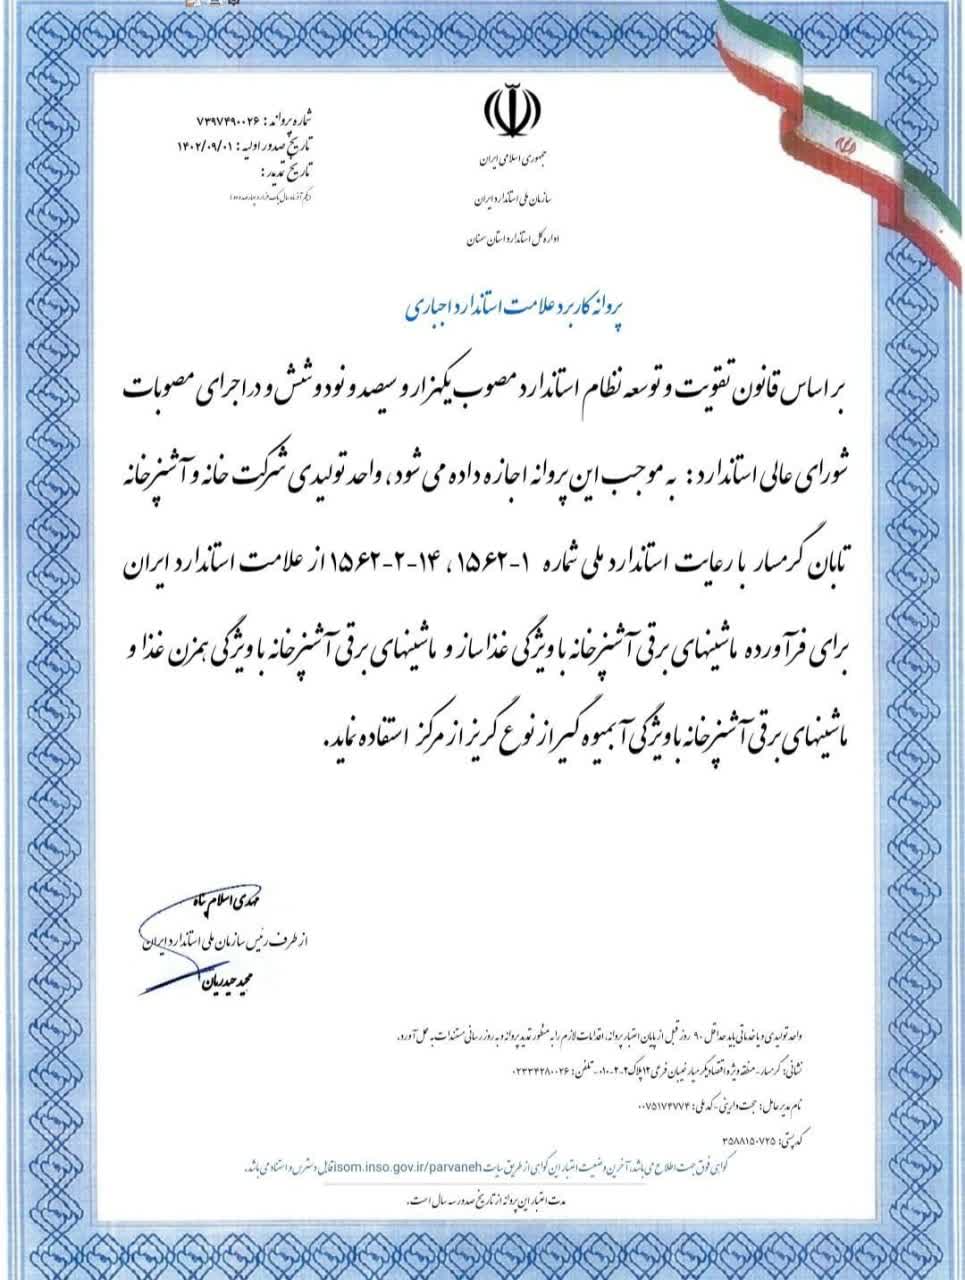 جمهوری اسلامی ایران
سازمان ملی استاندارد ایران
اداره کل استاندارد استان سمنان
شماره پروانه : ۷۳۹۷۴۹۰۰۲۶
تاریخ صدور اولیه : ۱۴۰۲/۰۹/۰۱
تاریخ تمدید :
پروانه کاربرد علامت استاندارد اجباری
بر اساس قانون تقویت و توسعه نظام استاندارد مصوب یکهزار و سیصد و نود و شش و در اجرای مصوبات
شورای عالی استاندارد : به موجب این پروانه اجازه داده می شود ، واحد تولیدی شرکت خانه و آشپزخانه
تابان گرمسار با رعایت استاندارد ملی شماره ۱-۱۵۶۲ ، ۱۴-۲-۱۵۶۲ از علامت استاندارد ایران
برای فرآورده ماشینهای برقی آشپزخانه با ویژگی غذاساز و ماشینهای برقی آشپزخانه با ویژگی همزن غذا و
ماشینهای برقی آشپزخانه با ویژگی آبمیوه گیر از نوع گریز از مرکز استفاده نماید .
مهدی اسلام پناه
از طرف رئیس سازمان ملی استاندارد ایران
مجید حیدریان
واحد تولیدی و یا خدماتی باید حداقل ۹۰ روز قبل از پایان اعتبار پروانه، اقدامات لازم را به منظور تمدید پروانه و به روز رسانی مستندات به عمل آورد.
نشانی: گرمسار - منطقه ویژه اقتصادی گرمسار خیابان فرعی ۱۲ پلاک ۲-۲-۰۱۰ - تلفن: ۰۲۳۳۴۲۸۰۰۲۶
نام مدیر عامل: حجت دارینی - کد ملی: ۰۰۷۵۱۷۴۷۷۴
کد پستی: ۳۵۸۸۱۵۰۷۲۵
گواهی فوق جهت اطلاع می باشد، آخرین وضعیت اعتبار این گواهی از طریق سایت isom.inso.gov.ir/parvaneh قابل دسترس و استناد می باشد.
مدت اعتبار این پروانه از تاریخ صدور سه سال است.